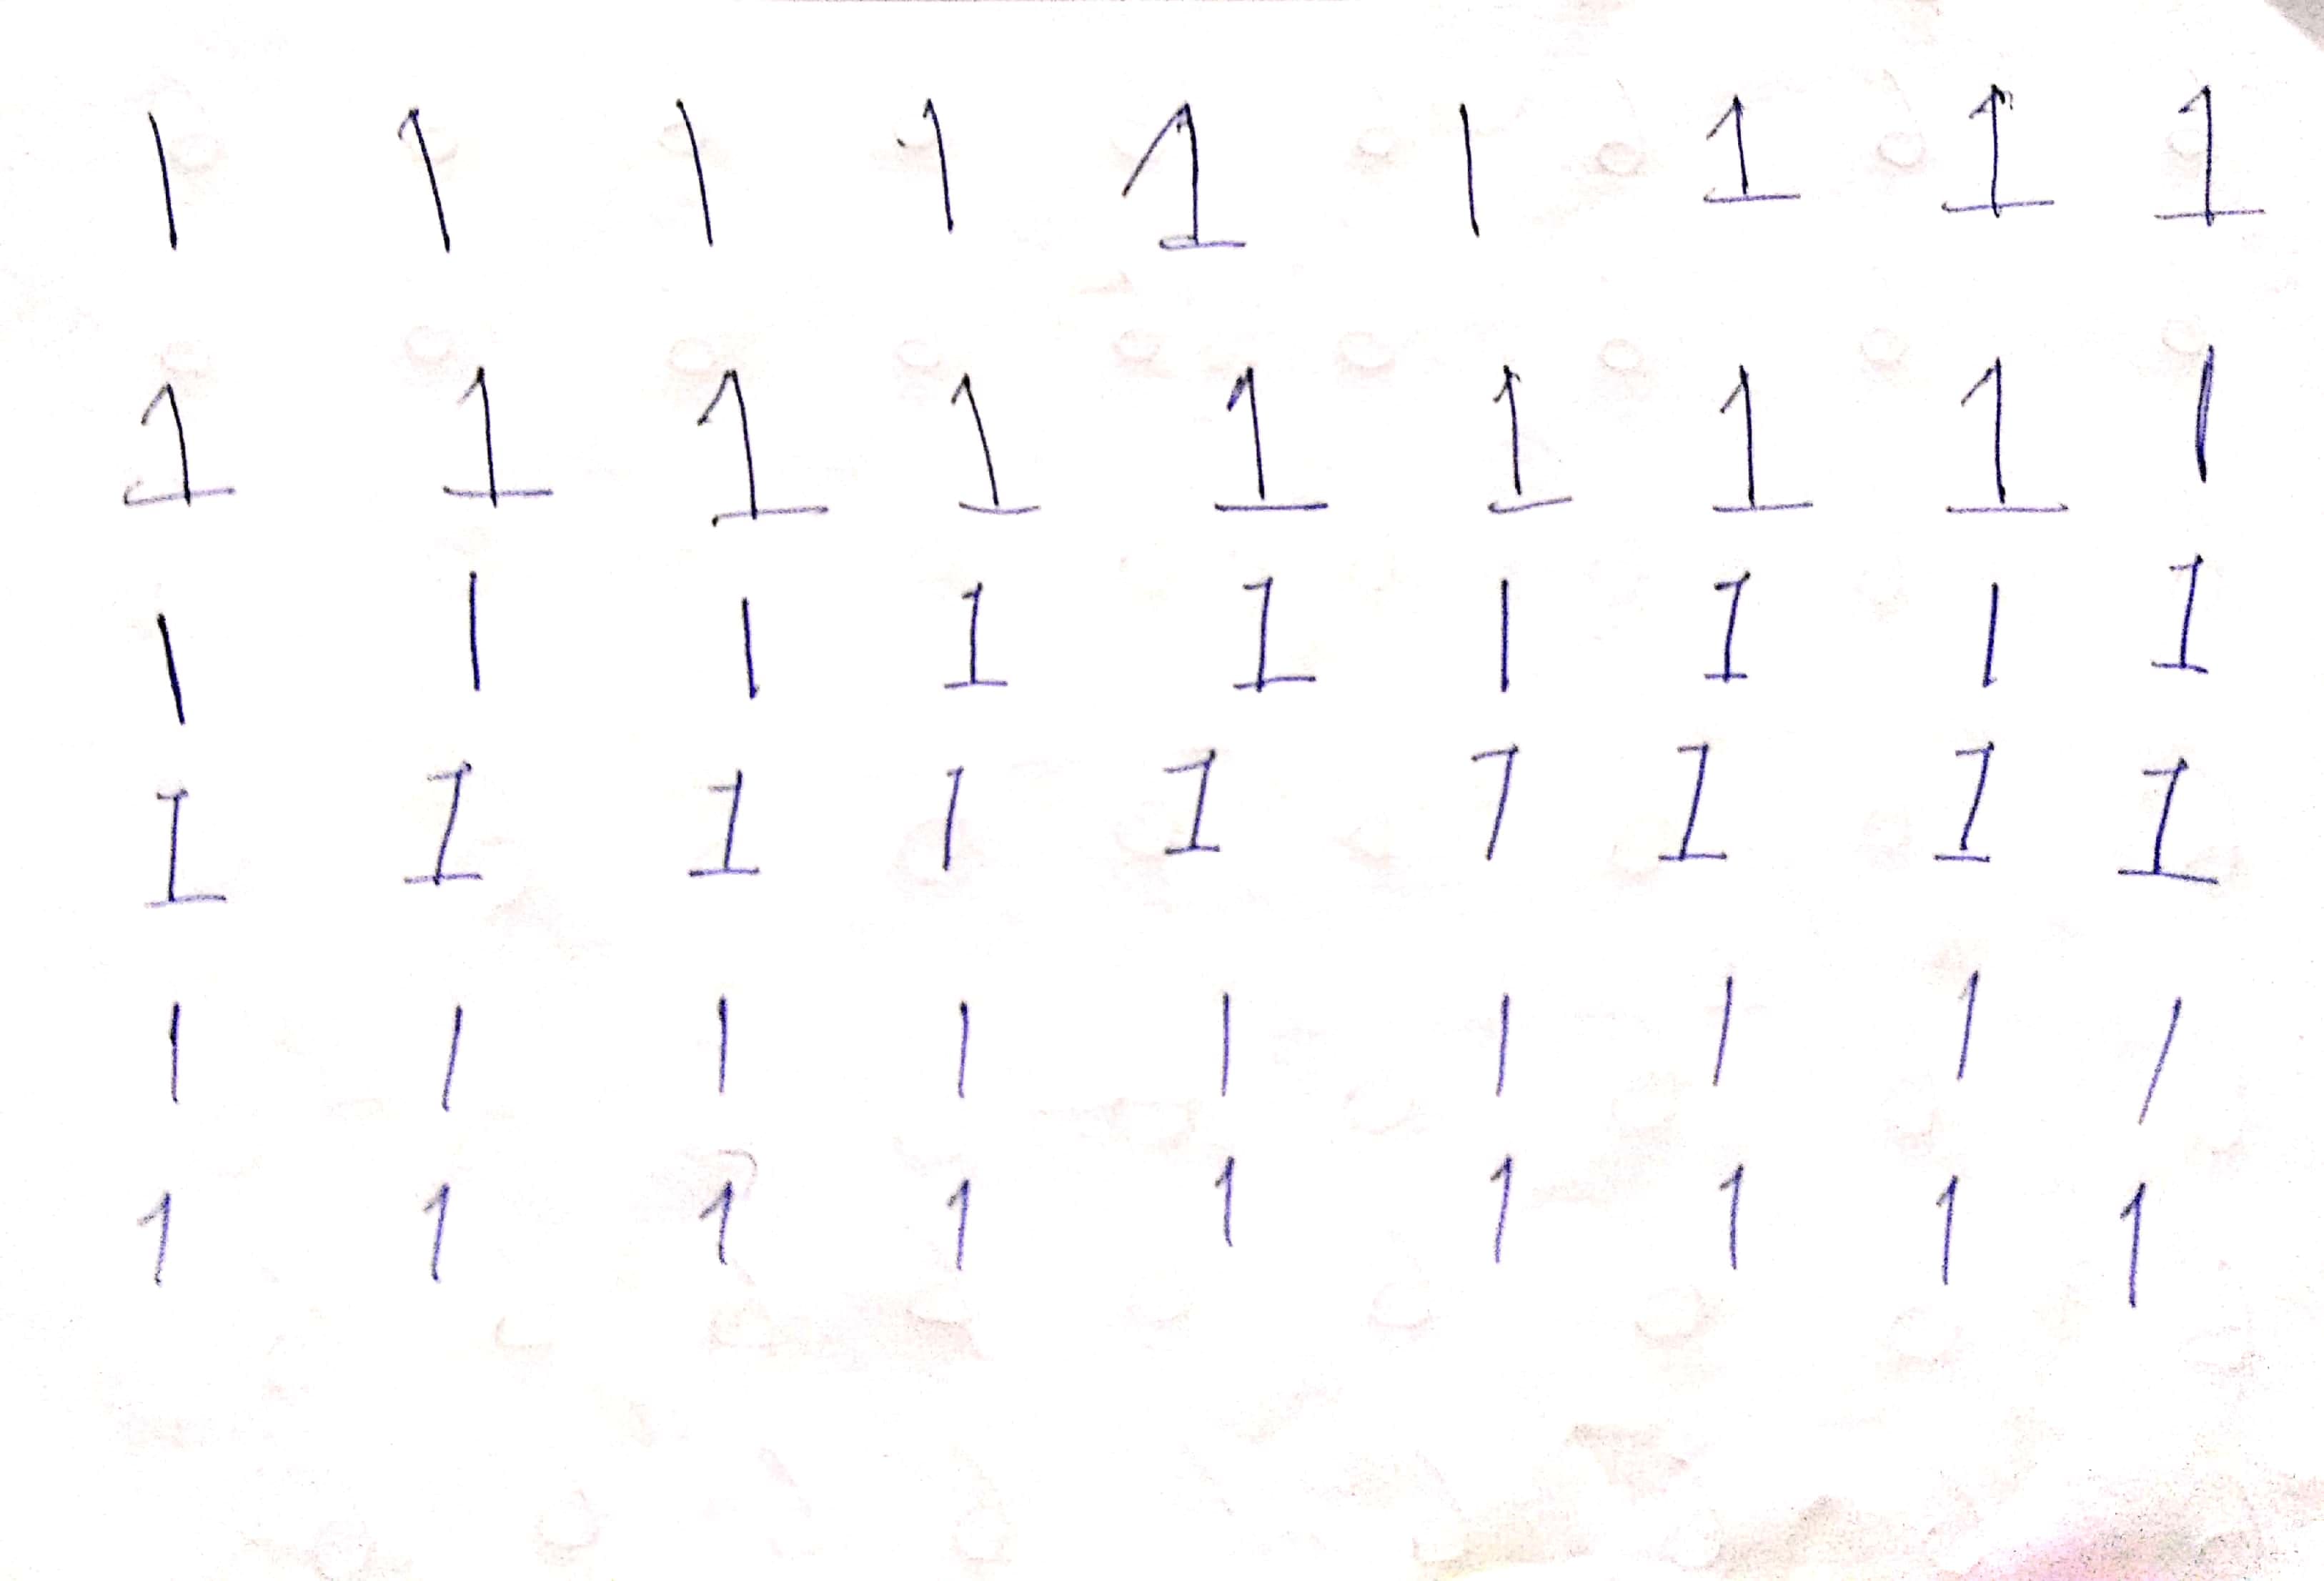 1 1 1 1 1 1 1 1 1
1 1 1 1 1 1 1 1 1
1 1 1 1 1 1 1 1 1
1 1 1 1 1 1 1 1 1
1 1 1 1 1 1 1 1 1
1 1 1 1 1 1 1 1 1